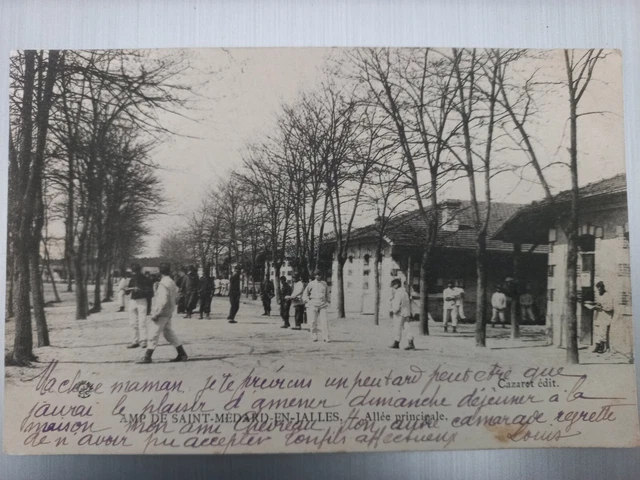 Cazaret édit.
Ma chère maman, je te préviens un peu tard peut être que
j'aurai le plaisir d'amener dimanche déjeuner à la
AMP DE SAINT-MÉDARD-EN-JALLES. — Allée principale.
maison mon ami Ton autre camarade regrette
de n'avoir pu accepter affectueux Louis